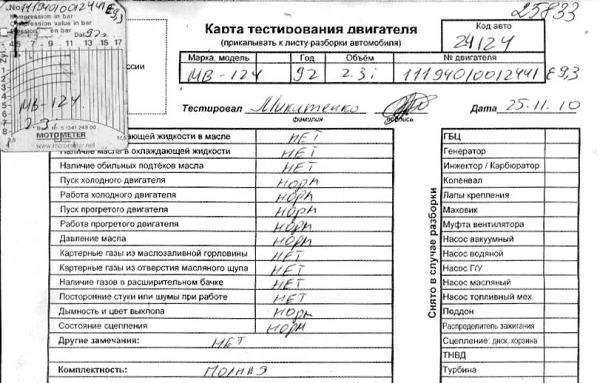 25833
Карта тестирования двигателя
(прикалывать к листу разборки автомобиля)
Код авто
24124
Марка, модель Год Объём № двигателя
МВ-124 92 2.3i 11194010012441 E9,3
Тестировал Микитенко Дата 25.11.10
фамилия подпись
11194010012441 E9,3
Compression in bar
Compression value in bar
en bar
92г
5 7 9 11 13 15 17
МВ-124
MOTOMETER
www.motometer.net
ающей жидкости в масле НЕТ
Наличие масла в охлаждающей жидкости НЕТ
Наличие обильных подтёков масла НЕТ
Пуск холодного двигателя НОРМ
Работа холодного двигателя НОРМ
Пуск прогретого двигателя НОРМ
Работа прогретого двигателя НОРМ
Давление масла НОРМ
Картерные газы из маслозаливной горловины НЕТ
Картерные газы из отверстия масляного щупа НЕТ
Наличие газов в расширительном бачке НЕТ
Посторонние стуки или шумы при работе НЕТ
Дымность и цвет выхлопа НОРМ
Состояние сцепления НОРМ
Другие замечания: НЕТ
Комплектность: ПОЛНАЯ
Снято в случае разборки
ГБЦ
Генератор
Инжектор / Карбюратор
Коленвал
Лапы крепления
Маховик
Муфта вентилятора
Насос вакуумный
Насос водяной
Насос Г/У
Насос масляный
Насос топливный мех.
Поддон
Распределитель зажигания
Сцепление: диск. корзина
ТНВД
Турбина